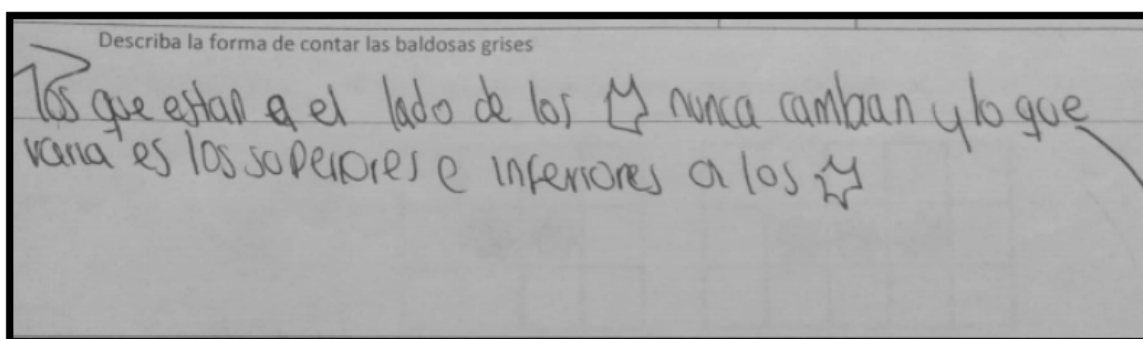 Describa la forma de contar las baldosas grises
los que estan a el lado de los nunca cambian y lo que
varia es los superiores e inferiores a los